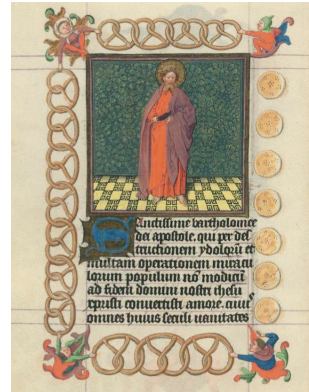 Sanctissime bartholomee
dei apostole, qui per des
tructionem ydolorū et
multam operationem miracu
lorum populum nō modicū
ad fidem domini nostri ihesu
xpristi convertisti amore, cuius
omnes huius seculi vanitates